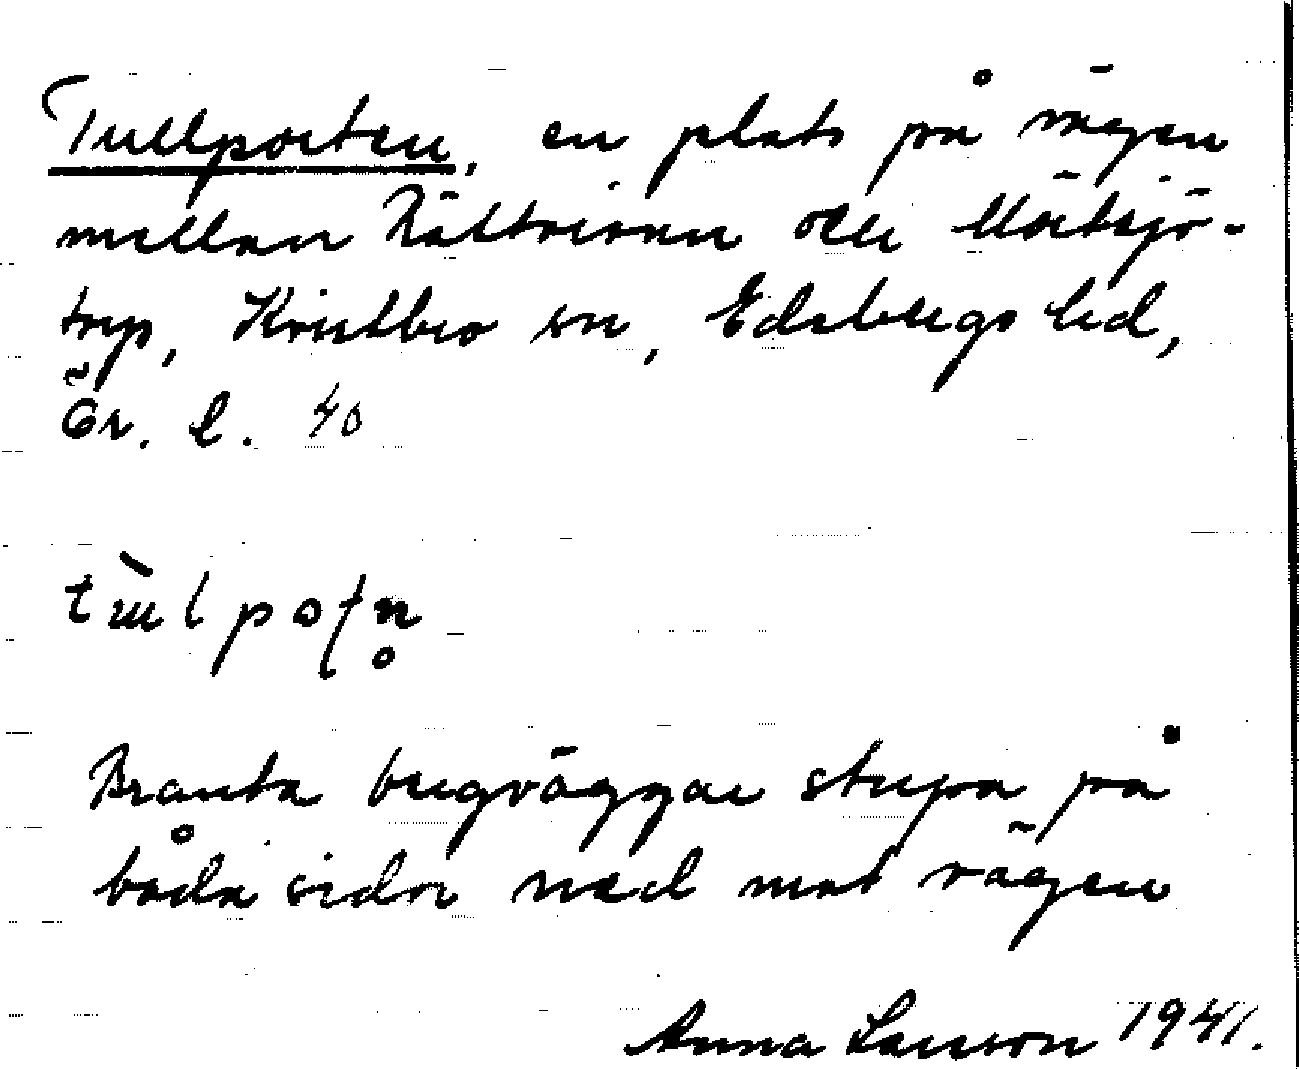 Tullporten, en plats på vägen
mellan och Mörtsjö-
torp, Kvistbro sn, Edsbergs hd,
Ör. l. 40
Branta bergväggar stupa på
båda sidor ned mot vägen
Anna Larsson 1941.